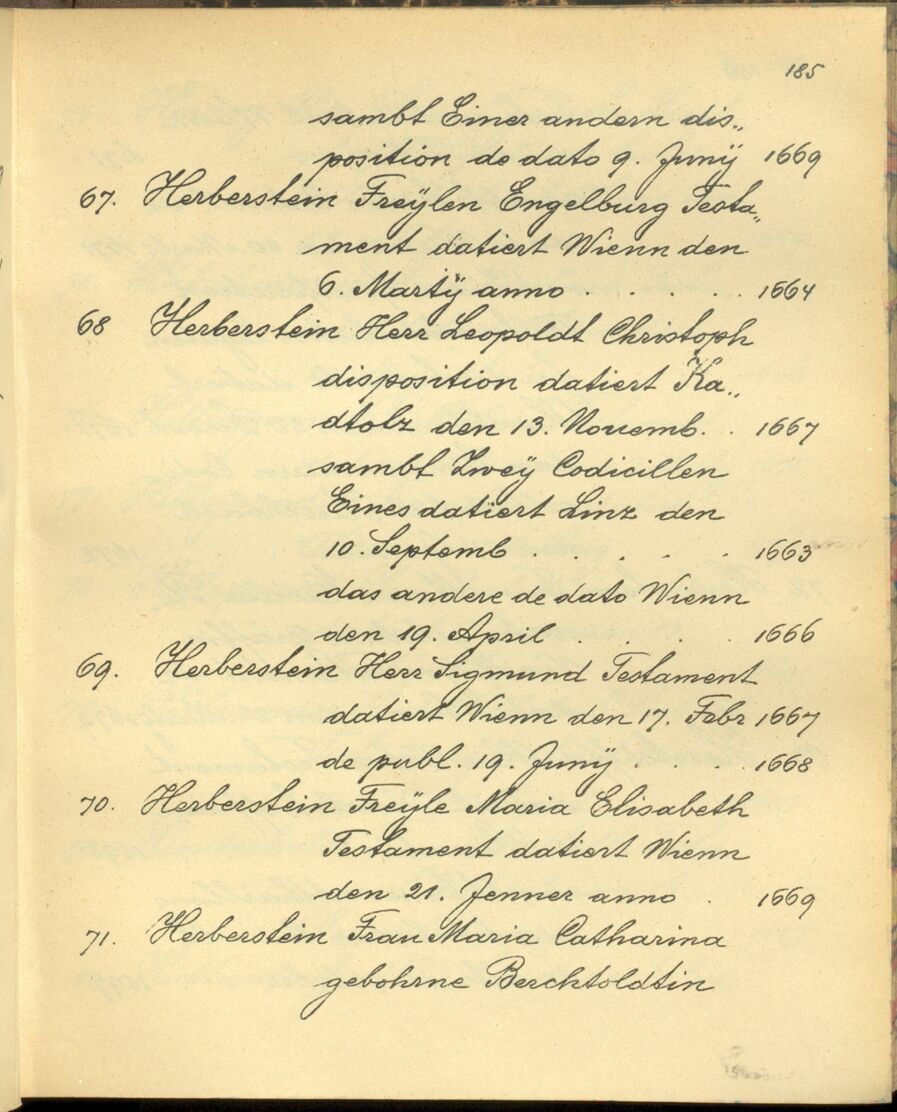 185
sambt Einer andern dis„
position de dato 9. Junÿ 1669
67. Herberstein Freÿlen Engelburg Testa„
ment datiert Wienn den
6. Martÿ anno . . . . . 1664
68 Herberstein Herr Leopoldt Christoph
disposition datiert Ka„
dtolz den 13. Nouemb. . 1667
sambt Zweÿ Codicillen
Eines datiert Linz den
10. Septemb . . . . . 1663
das andere de dato Wienn
den 19. April . . . . 1666
69. Herberstein Herr Sigmund Testament
datiert Wienn den 17. Febr 1667
de publ. 19. Junÿ . . . . 1668
70. Herberstein Freÿle Maria Elisabeth
Testament datiert Wienn
den 21. Jenner anno . 1669
71. Herberstein Frau Maria Catharina
gebohrne Berchtoldtin